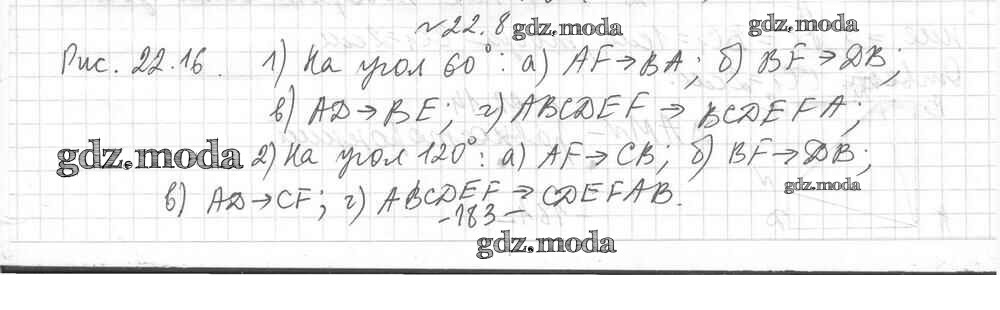 №22.8 gdz.moda gdz.moda
Рис. 22.16. 1) На угол 60°: а) AF→BA; б) BF→DB;
в) AD→BE; г) ABCDEF → BCDEFA;
gdz.moda 2) На угол 120°: а) AF→CB; б) BF→DB;
gdz.moda
в) AD→CF; г) ABCDEF → CDEFAB.
-183-
gdz.moda